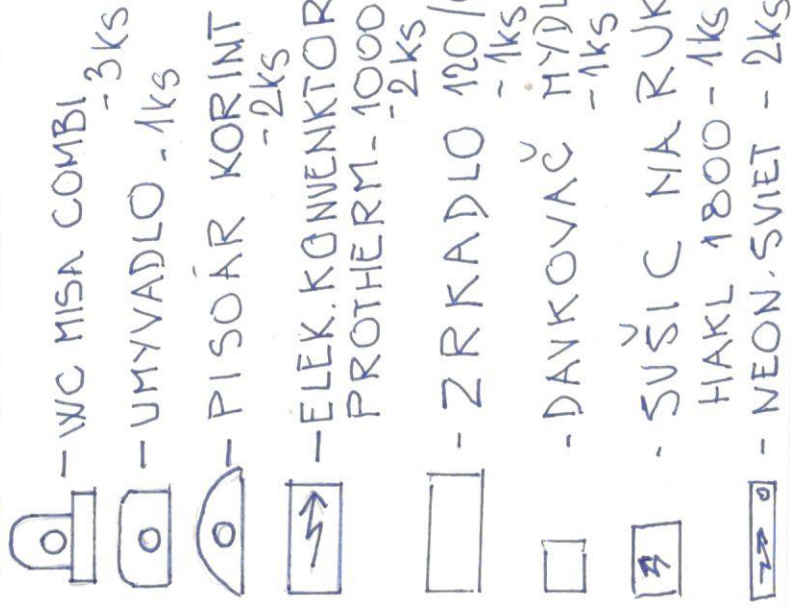 - WC MISA COMBI
- 3KS
- UMYVADLO - 1KS
- PISOÁR KORINT
- 2KS
- ELEK. KONVENKTOR
PROTHERM - 1000
- 2KS
- ZRKADLO 120/
- 1KS
- DAVKOVAČ MYDL
- 1KS
- SUŠIC NA RUK
HAKL 1800 - 1KS
- NEON. SVIET - 2KS